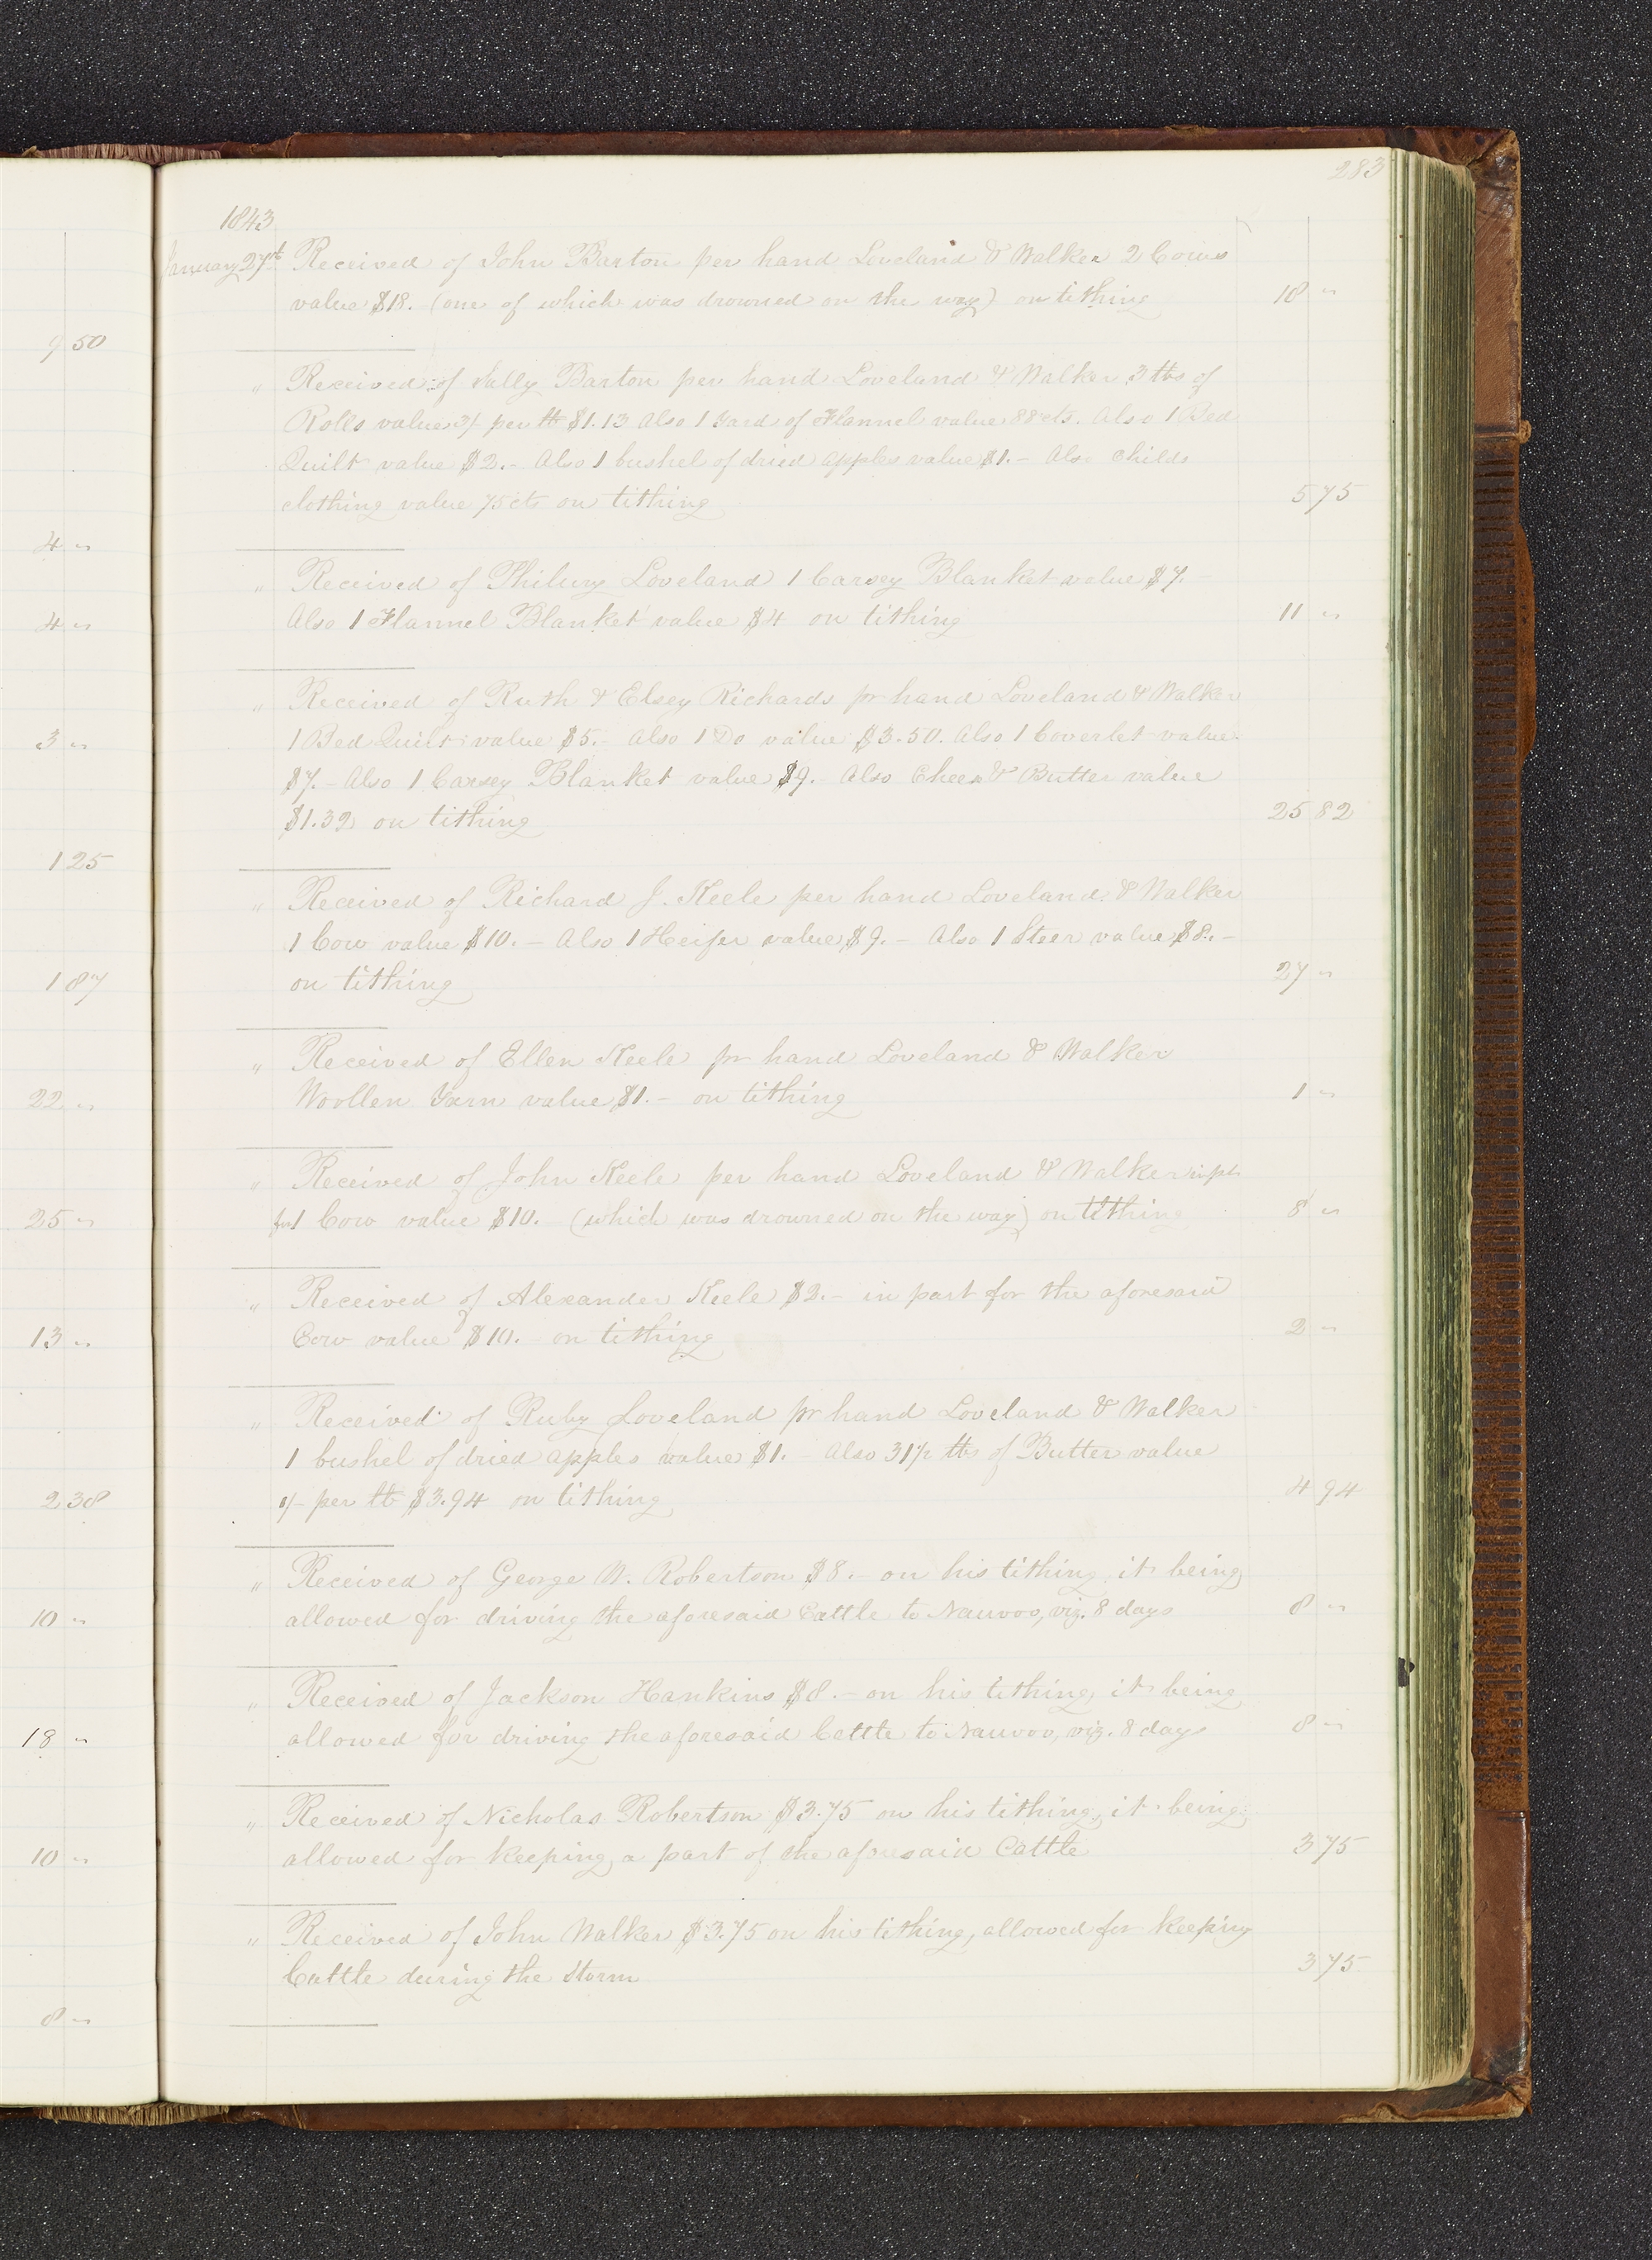 283
1843
January 27th Received of John Barton per hand Loveland & Walker 2 Cows
value $18.- (one of which was drowned on the way) on tithing 18 "
9 50
" Received of Sally Barton per hand Loveland & Walker 3 lbs of
Rolls value 3/ per lb $1.13 Also 1 Yard of Flannel value 88 cts. Also 1 Bed
Quilt value $2.- Also 1 bushel of dried apples value $1.- Also Childs
clothing value 75 cts on tithing 5 75
4 "
" Received of Philury Loveland 1 Carsey Blanket value $7.-
4 " Also 1 Flannel Blanket value $4 on tithing 11 "
" Received of Ruth & Elsey Richards pr hand Loveland & Walker
3 " 1 Bed Quilt value $5.- Also 1 Do value $3.50. Also 1 Coverlet value
$7.- Also 1 Carsey Blanket value $9.- Also Cheese & Butter value
$1.32 on tithing 25 82
1 25
" Received of Richard J. Keele per hand Loveland & Walker
1 Cow value $10.- Also 1 Heifer value $9.- Also 1 Steer value $8.-
1 87 on tithing 27 "
" Received of Ellen Keele pr hand Loveland & Walker
22 " Woollen Yarn value $1.- on tithing 1 "
" Received of John Keele per hand Loveland & Walker in pt.
25 " for 1 Cow value $10. (which was drowned on the way) on tithing 8 "
" Received of Alexander Keele $2.- in part for the aforesaid
13 " Cow value $10.- on tithing 2 "
" Received of Ruby Loveland pr hand Loveland & Walker
1 bushel of dried apples value $1.- Also 31 1/2 lbs of Butter value
2 38 1/- per lb $3.94 on tithing 4 94
" Received of George W. Robertson $8.- on his tithing, it being
10 " allowed for driving the aforesaid Cattle to Nauvoo, viz. 8 days 8 "
" Received of Jackson Hankins $8.- on his tithing, it being
18 " allowed for driving the aforesaid Cattle to Nauvoo, viz. 8 days 8 "
" Received of Nicholas Robertson $3.75 on his tithing, it being
10 " allowed for keeping a part of the aforesaid Cattle 3 75
" Received of John Walker $3.75 on his tithing, allowed for keeping
Cattle during the Storm 3 75
8 "